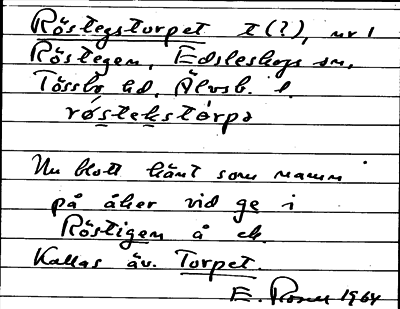 Röstegstorpet t(?), nr 1
Röstegen, Edsleskogs sn,
Tössbo hd. Älvsb. l.
røstekstòrpə
Nu blott känt som namn
på åker vid ge i
Röstigen å ek.
Kallas äv. Torpet.
E. Rosell 1964